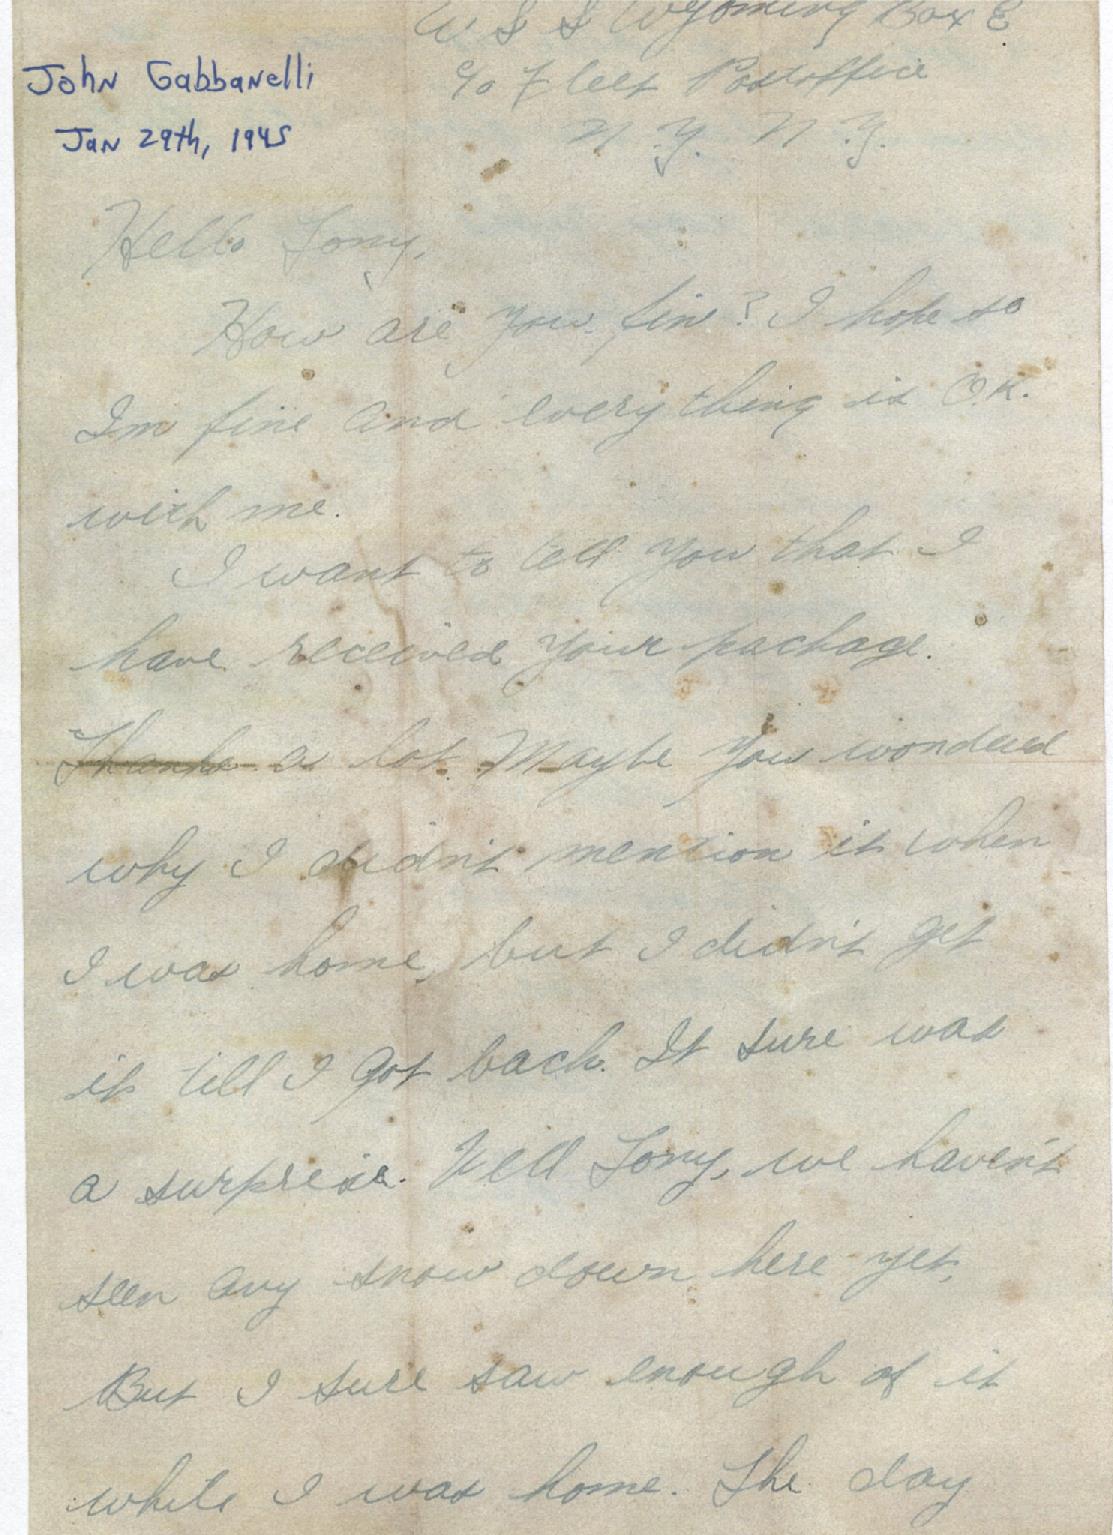 U S S Wyoming Box E
John Gabbanelli
c/o Fleet Postoffice
Jan 29th, 1945
N. Y. N. Y.
Hello Tony,
How are you, fine? I hope so
Im fine and everything is O.K.
with me.
I want to tell you that I
have received your package.
Thanks a lot. Maybe you wondered
why I didn't mention it when
I was home, but I didn't get
it till I got back. It sure was
a surprise. Well Tony, we haven't
seen any snow down here yet,
But I sure saw enough of it
while I was home. The day